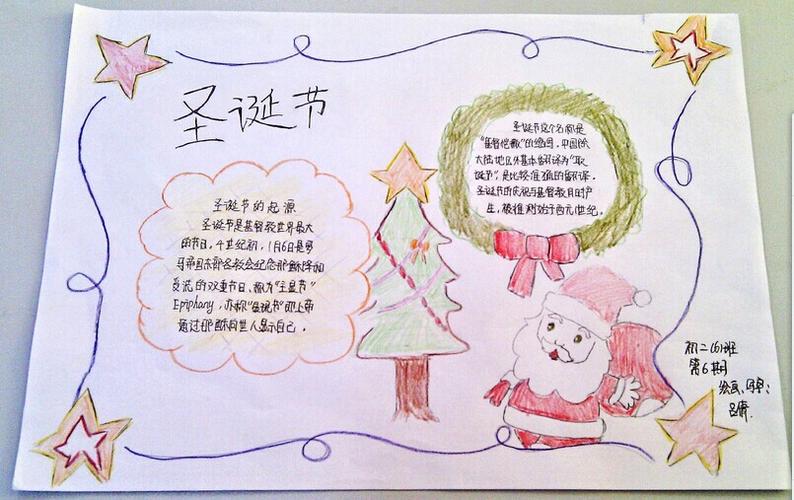 圣诞节
圣诞节的起源
圣诞节是基督教世界最大
的节日，4世纪初，1月6日是罗
马帝国东部各教会纪念耶稣降和
受洗的双重节日、称为“主显节”
Epiphany，亦称“显现节”即上帝
通过耶稣向世人显示自己。
圣诞节这个名称是
“基督弥撒”的缩写。中国除
大陆地区外基本翻译为“耶
诞节”，是比较准确的翻译。
圣诞节的庆祝与基督教同时产
生，被推测始于西元1世纪。
初二(6)班
第6期
绘画、